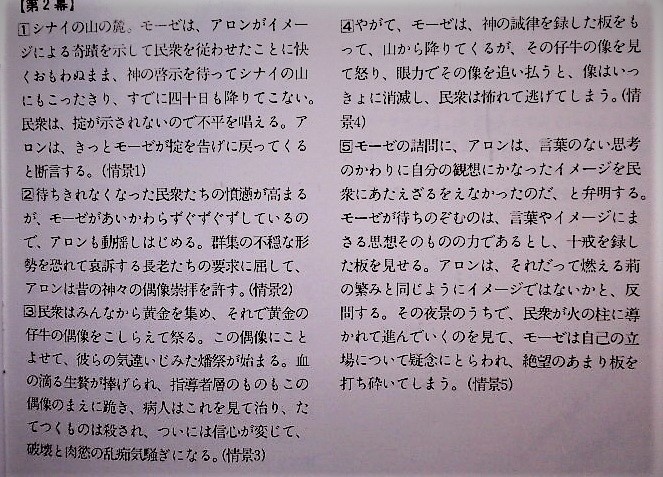 【第2幕】
1 シナイの山の麓。モーゼは、アロンがイメー
ジによる奇蹟を示して民衆を従わせたことに快
くおもわぬまま、神の啓示を待ってシナイの山
にもこったきり、すでに四十日も降りてこない。
民衆は、掟が示されないので不平を唱える。ア
ロンは、きっとモーゼが掟を告げに戻ってくる
と断言する。(情景1)
2 待ちきれなくなった民衆たちの憤懣が高まる
が、モーゼがあいかわらずぐずぐずしているの
で、アロンも動揺しはじめる。群集の不穏な形
勢を恐れて哀訴する長老たちの要求に屈して、
アロンは昔の神々の偶像崇拝を許す。(情景2)
3 民衆はみんなから黄金を集め、それで黄金の
仔牛の偶像をこしらえて祭る。この偶像にこと
よせて、彼らの気違いじみた燔祭が始まる。血
の滴る生贄が捧げられ、指導者層のものもこの
偶像のまえに跪き、病人はこれを見て治り、た
てつくものは殺され、ついには信心が変じて、
破壊と肉慾の乱痴気騒ぎになる。(情景3)
4 やがて、モーゼは、神の誡律を録した板をも
って、山から降りてくるが、その仔牛の像を見
て怒り、眼力でその像を追い払うと、像はいっ
きょに消滅し、民衆は怖れて逃げてしまう。(情
景4)
5 モーゼの詰問に、アロンは、言葉のない思考
のかわりに自分の観想にかなったイメージを民
衆にあたえざるをえなかったのだ、と弁明する。
モーゼが待ちのぞむのは、言葉やイメージにま
さる思想そのものの力であるとし、十戒を録し
た板を見せる。アロンは、それだって燃える荊
の繁みと同じようにイメージではないかと、反
問する。その夜景のうちで、民衆が火の柱に導
かれて進んでいくのを見て、モーゼは自己の立
場について疑念にとらわれ、絶望のあまり板を
打ち砕いてしまう。(情景5)